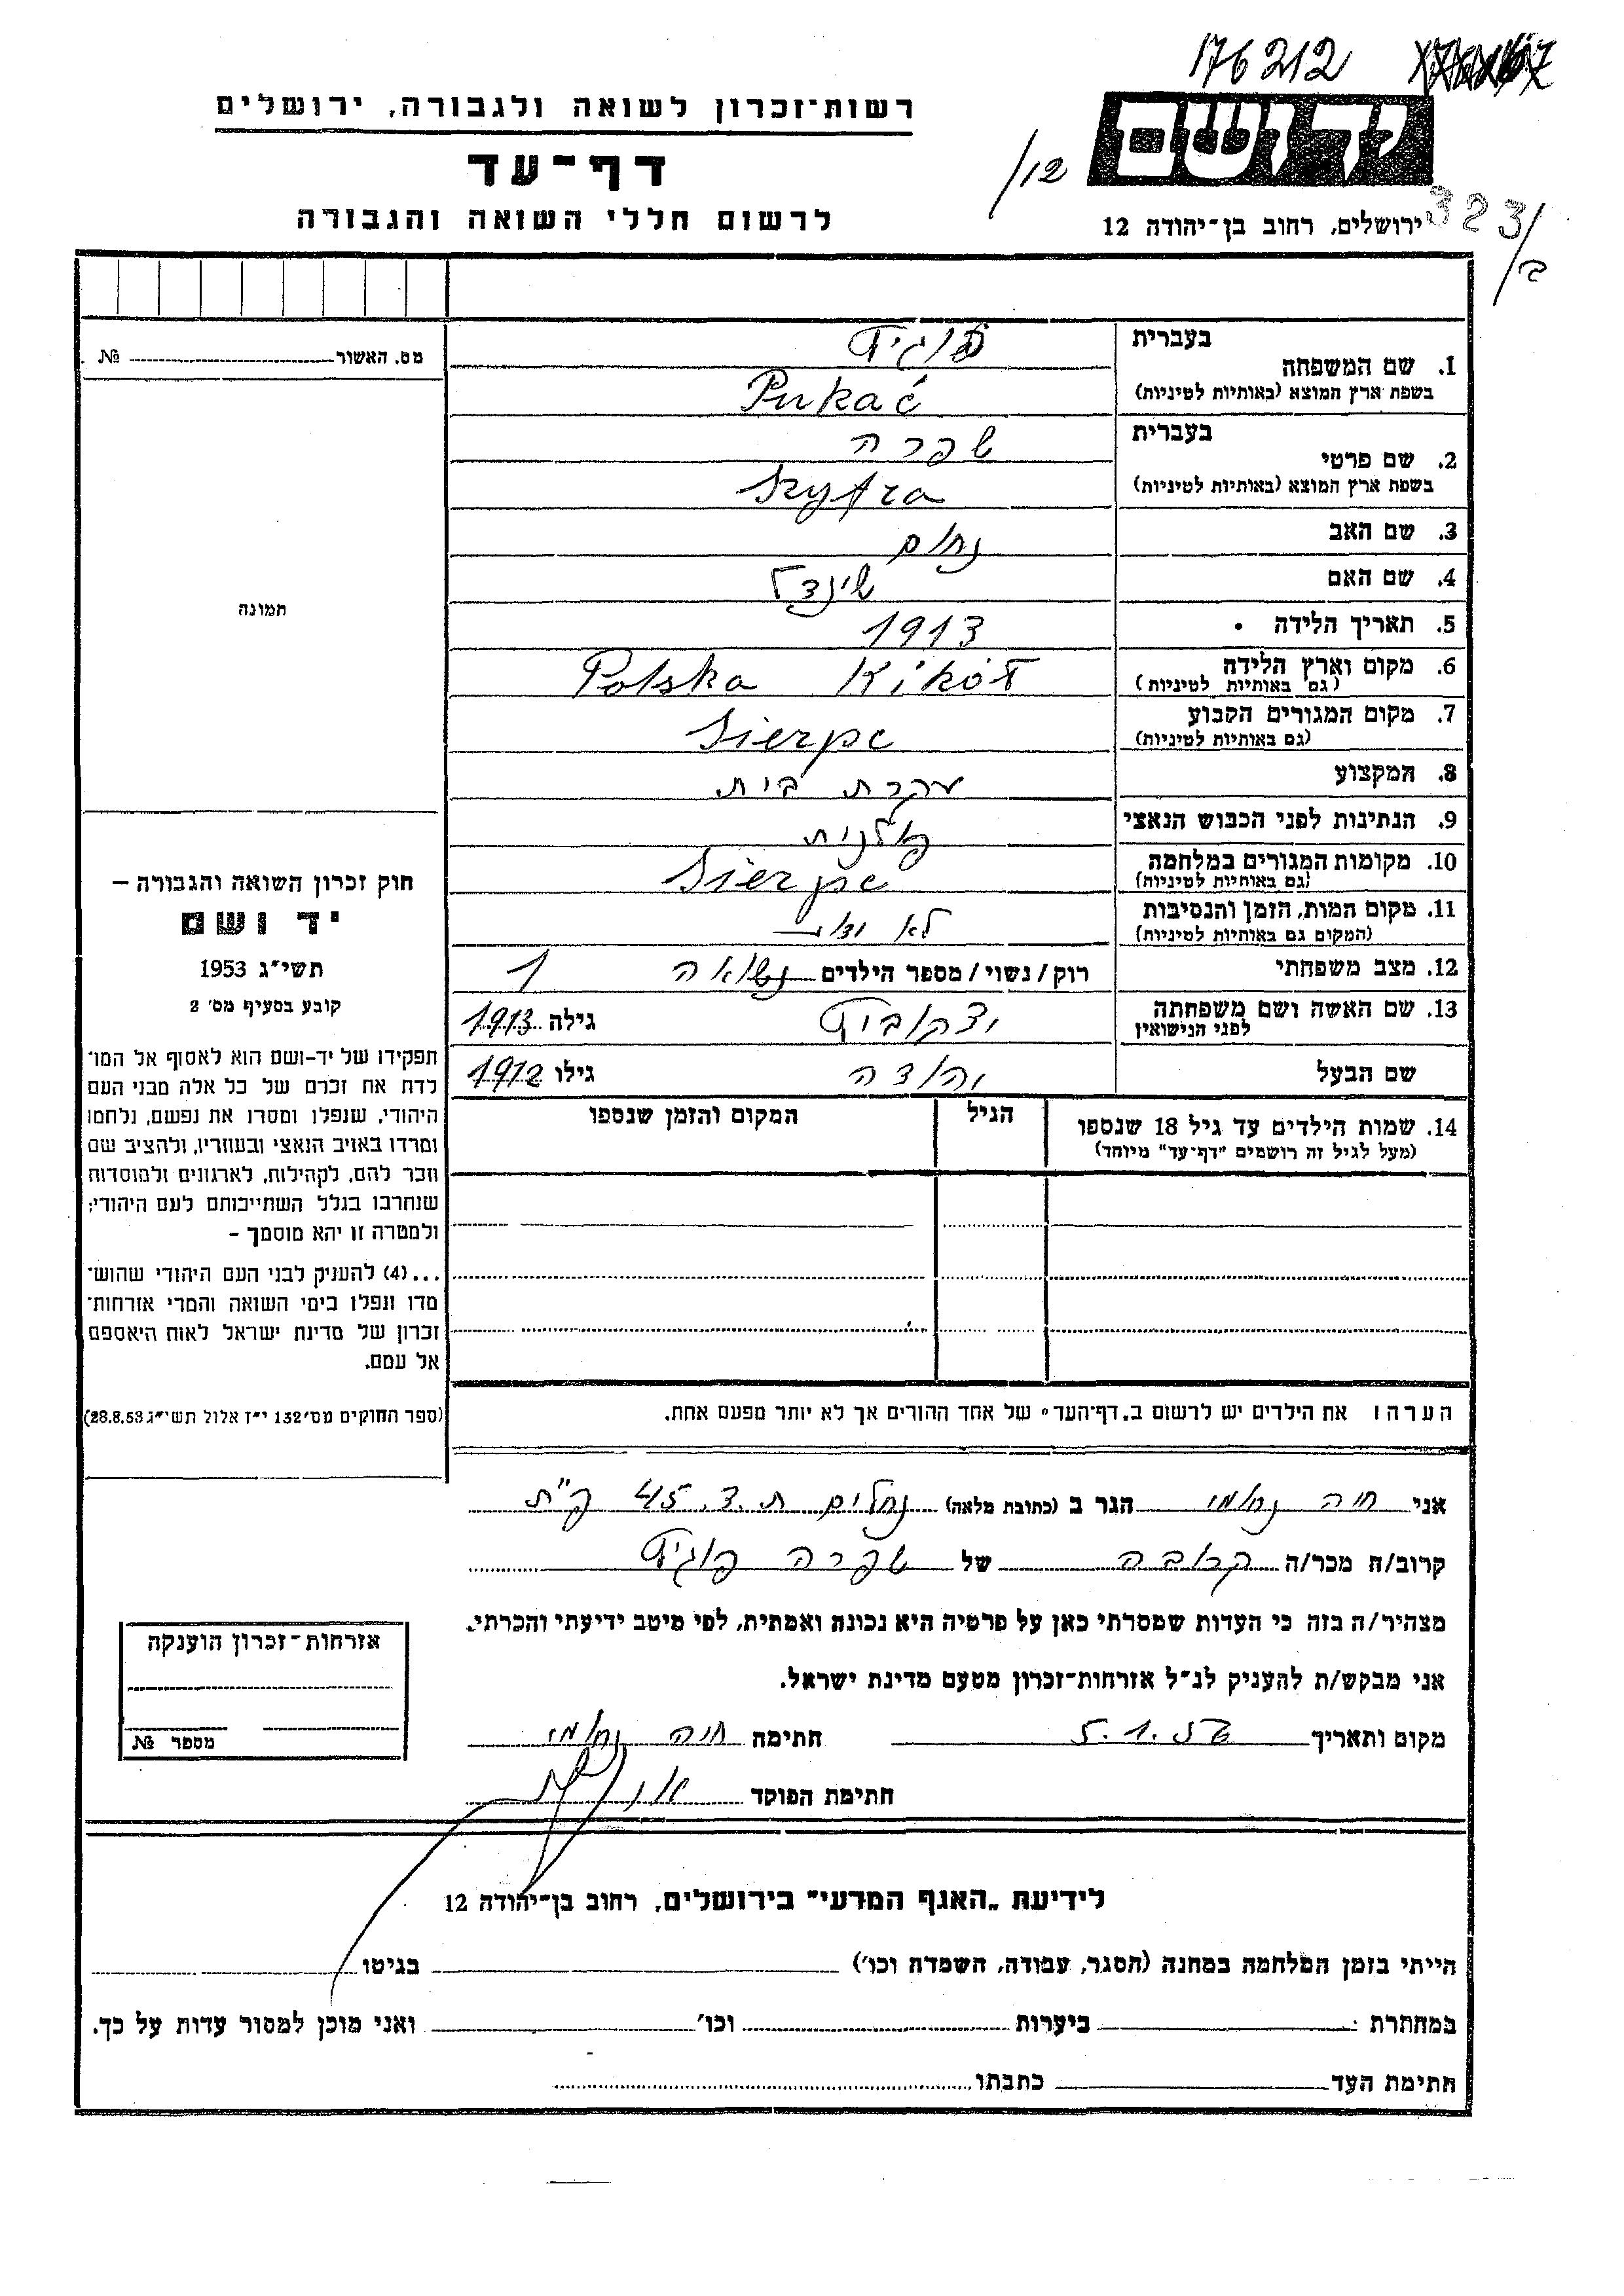 176212
רשות-זכרון לשואה ולגבורה, ירושלים
ידושם
דף-עד
/12
לרשום חללי השואה והגבורה
ירושלים, רחוב בן-יהודה 12
323/
ב
בעברית
1. שם המשפחה
בשפת ארץ המוצא (באותיות לטיניות) Pukać
בעברית שפרה
2. שם פרטי
בשפת ארץ המוצא (באותיות לטיניות) Szyfra
3. שם האב נחום
4. שם האם שינדל
5. תאריך הלידה 1913
6. מקום וארץ הלידה Polska Kikół
(גם באותיות לטיניות)
7. מקום המגורים הקבוע Sierpc
(גם באותיות לטיניות)
8. המקצוע עקרת בית
9. הנתינות לפני הכבוש הנאצי פולנית
10. מקומות המגורים במלחמה Sierpc
(גם באותיות לטיניות)
11. מקום המות, הזמן והנסיבות לא
(המקום גם באותיות לטיניות)
12. מצב משפחתי רוק/נשוי/מספר הילדים נשואה 1
13. שם האשה ושם משפחתה גילה 1913
לפני הנישואין
שם הבעל יהודה גילו 1912
14. שמות הילדים עד גיל 18 שנספו הגיל המקום והזמן שנספו
(מעל לגיל זה רושמים "דף-עד" מיוחד)
הערה: את הילדים יש לרשום ב„דף-העד" של אחד ההורים אך לא יותר מפעם אחת.
מס. האשור № 
תמונה
חוק זכרון השואה והגבורה –
יד ושם
תשי״ג 1953
קובע בסעיף מס׳ 2
תפקידו של יד-ושם הוא לאסוף אל המו־
לדת את זכרם של כל אלה מבני העם
היהודי, שנפלו ומסרו את נפשם, נלחמו
ומרדו באויב הנאצי ובעוזריו, ולהציב שם
וזכר להם, לקהילות, לארגונים ולמוסדות
שנחרבו בגלל השתייכותם לעם היהודי;
ולמטרה זו יהא מוסמך –
...(4) להעניק לבני העם היהודי שהוש־
מדו ונפלו בימי השואה והמרי אזרחות־
זכרון של מדינת ישראל לאות היאספם
אל עמם.
(ספר החוקים מס׳ 132 י״ז אלול תשי״ג 28.8.53)
אני חיה נחומי הגר ב (כתובת מלאה) נחלים ת.ד. 45 פ״ת
קרוב/ה מכר/ה קרובה של שפרה
מצהיר/ה בזה כי העדות שמסרתי כאן על פרטיה היא נכונה ואמתית, לפי מיטב ידיעתי והכרתי.
אני מבקש/ת להעניק לנ״ל אזרחות-זכרון מטעם מדינת ישראל.
מקום ותאריך 5.1.56 חתימה חיה נחומי
חתימת הפוקד
אזרחות-זכרון הוענקה
מספר №
לידיעת „האגף המדעי" בירושלים, רחוב בן-יהודה 12
הייתי בזמן המלחמה במחנה (הסגר, עבודה, השמדה וכו׳) בגיטו
במחתרת ביערות וכו׳ ואני מוכן למסור עדות על כך.
חתימת העד כתבתו